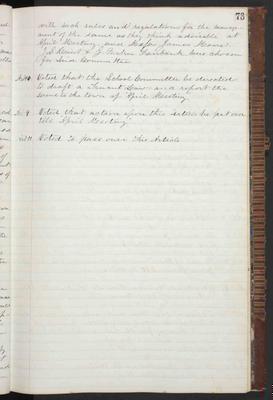 73
with such rules and regulations for the manage-
ment of the same as they think advisable at
April Meeting, and Major James Means,
& J. Parker Fairbank were chosen
for such Committee
Art 10 Voted that the School Committee be directed
to draft a Truant Law and report the
same to the town at April Meeting
Voted that action upon this article be put over
till April Meeting
Art 11 Voted to pass over this Article